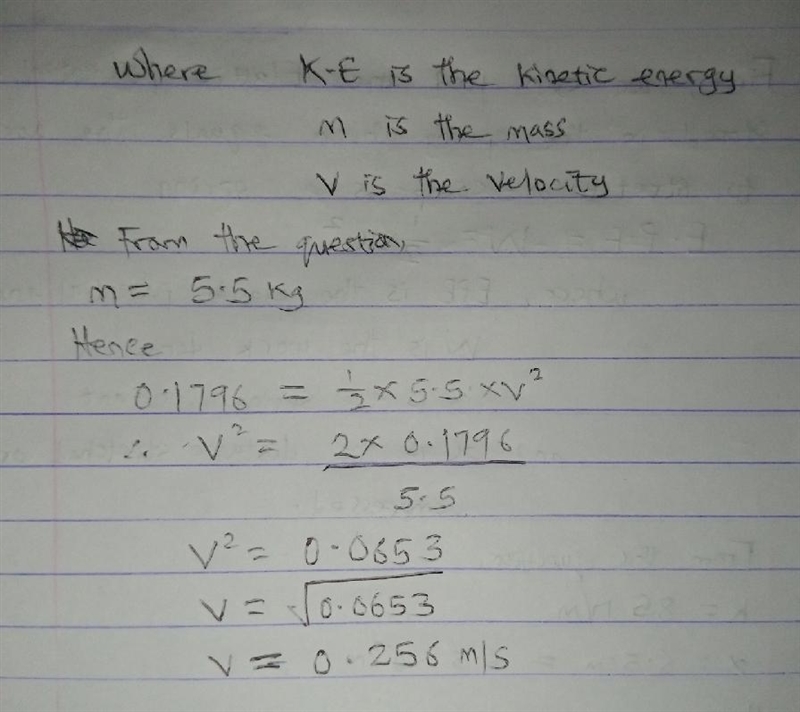 Where K-E is the kinetic energy
m is the mass
V is the velocity
From the question,
m = 5.5 kg
Hence
0.1796 = 1/2 × 5.5 × v²
∴ v² = 2 × 0.1796
5.5
v² = 0.0653
v = √0.0653
v = 0.256 m/s